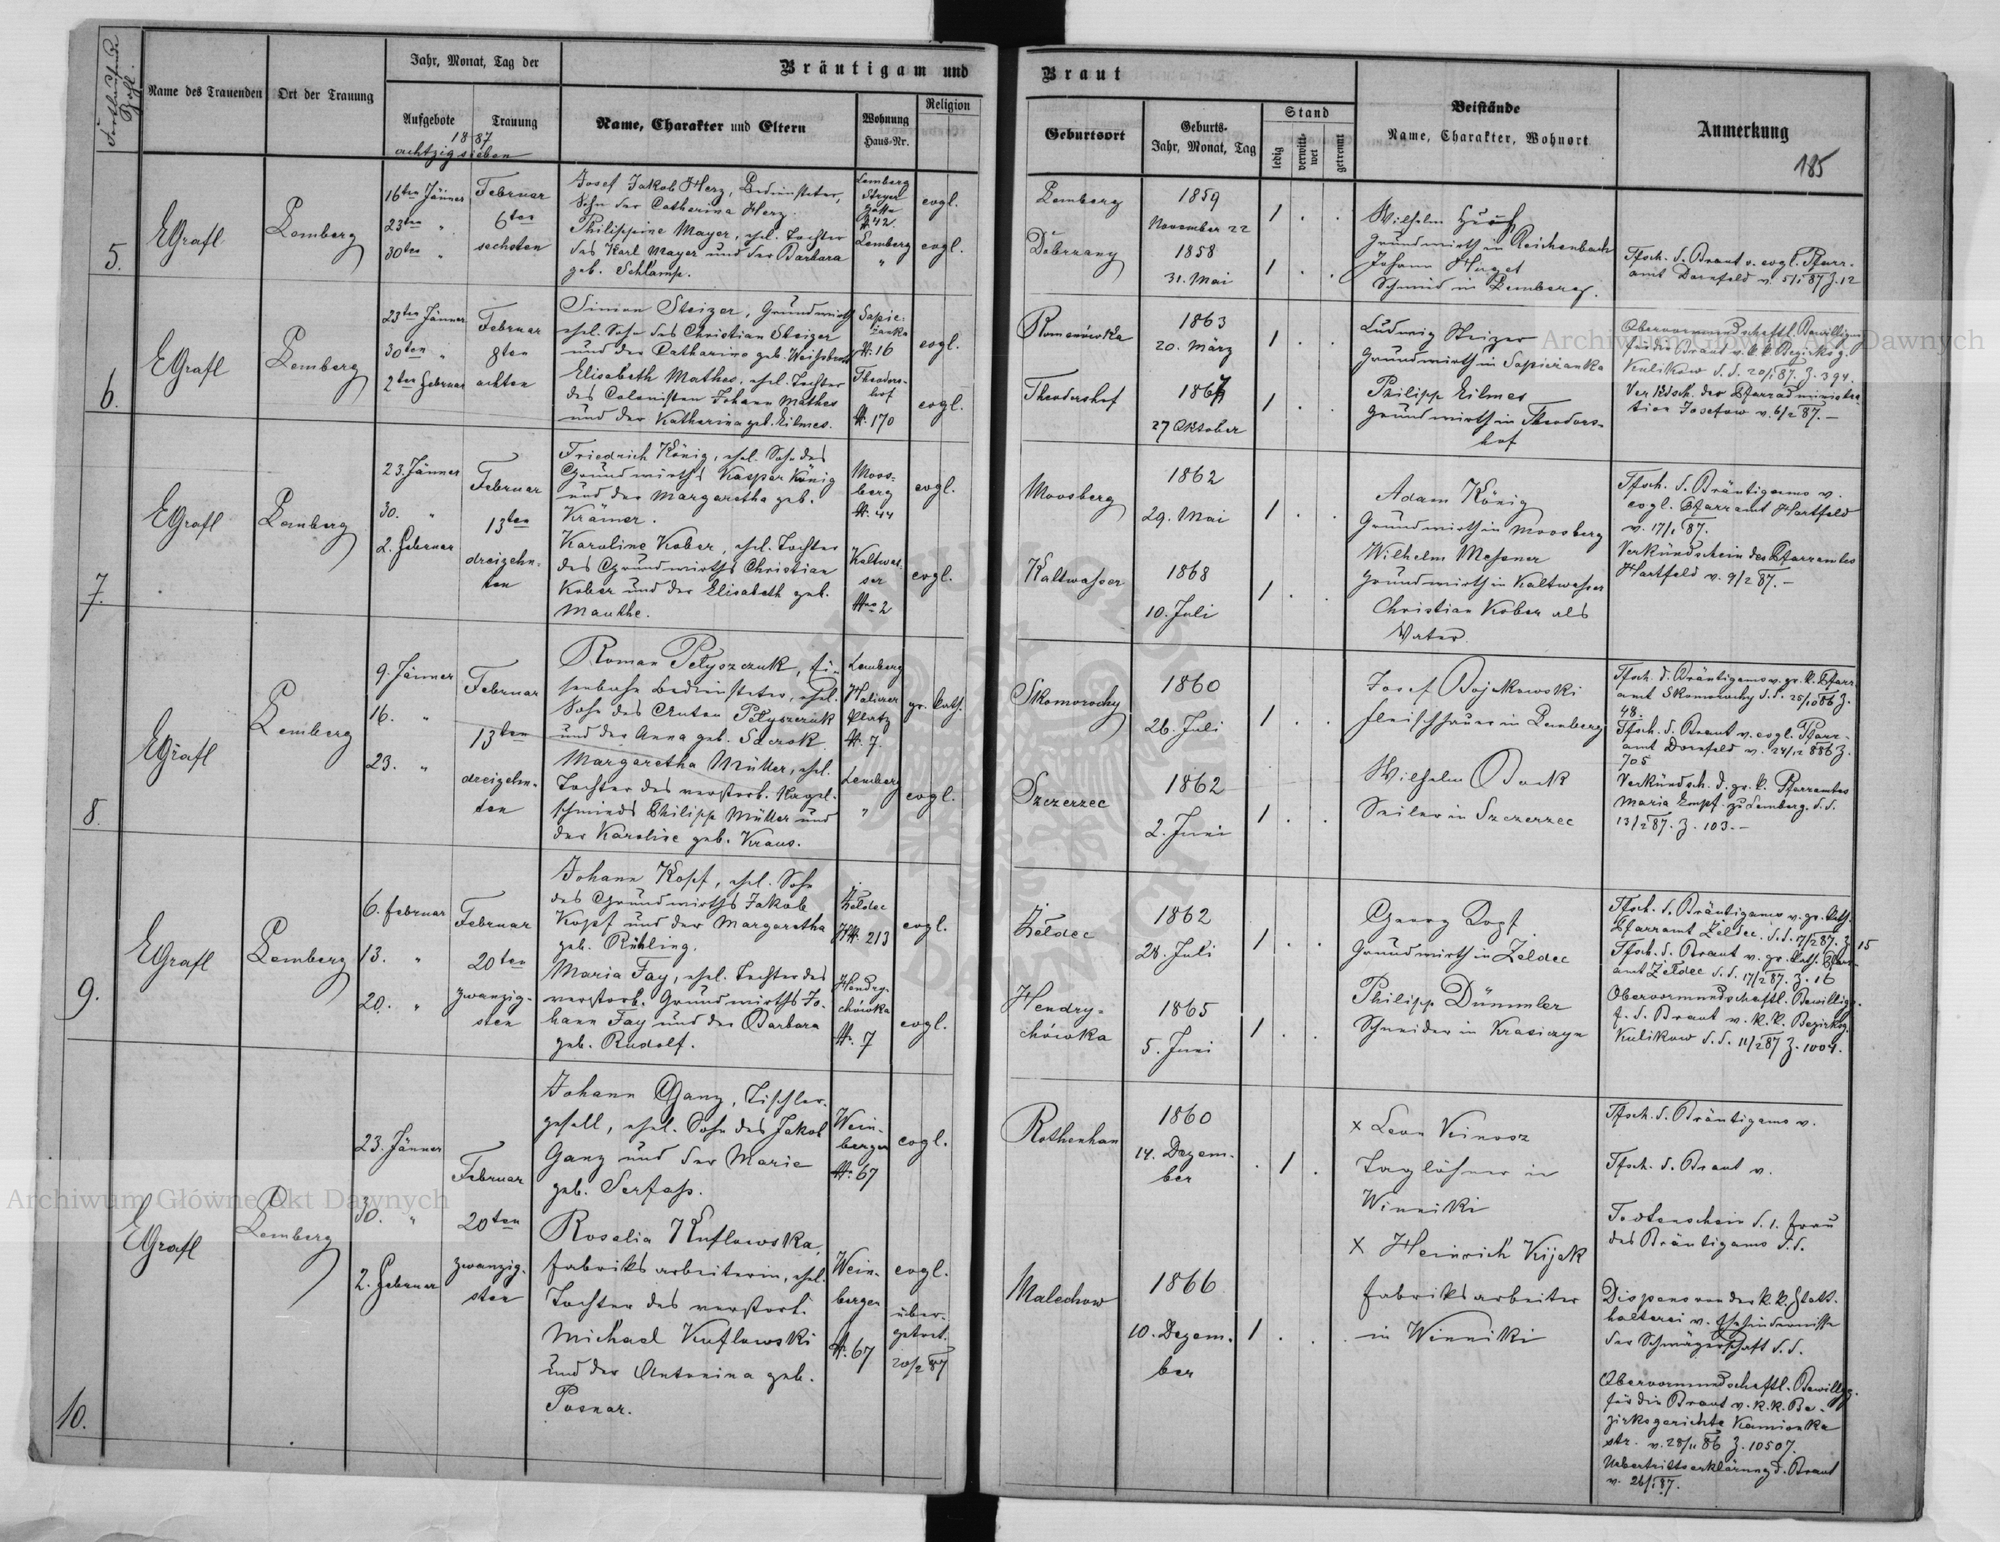 Fortlaufende Zahl.
Name des Trauenden
Ort der Trauung
Jahr, Monat, Tag der
Aufgebote
Trauung
1887
achtzig sieben
Bräutigam und
Name, Charakter und Eltern
Wohnung
Haus-Nr.
Religion
Braut
Geburtsort
Geburts-
Jahr, Monat, Tag
Stand
ledig
verwitt-
wet
getrennt
Beistände
Name, Charakter, Wohnort
Anmerkung
185
5.
EGrafl
Lemberg
16ten Jänner
23ten "
30ten "
Februar
6ten
sechsten
Josef Jakob Herz, Bediensteter,
Sohn der Catharina Herz.
Philippine Mayer, ehel. Tochter
des Karl Mayer und der Barbara
geb. Schlamp.
Lemberg
Stryer
gasse
N. 42
Lemberg
"
evgl.
evgl.
Lemberg
Dobrzany
1859
November 22
1858
31. Mai
1 . .
1 . .
Wilhelm
Grundwirth in Reichenbach
Johann
Schmied in Lemberg.
Tfsch. d. Braut v. evgl. Pfarr-
amt Dornfeld v. 5/1 87 Z. 12
6.
EGrafl
Lemberg
23ten Jänner
30ten "
2ten Februar
Februar
8ten
achten
Simon Steizer, Grundwirth
ehel. Sohn des Christian Steizer
und der Catharina geb.
Elisabeth Mathes, ehel. Tochter
des Colonisten Johann Mathes
und der Katharina geb. Eilmes.
Sapie-
żanka
N. 16
Theodors-
hof
N. 170
evgl.
evgl.
Romanówka
Theodorshof
1863
20. März
1867
27 Oktober
1 . .
1 . .
Ludwig Steizer
Grundwirth in Sapiezanka
Philipp Eilmes
Grundwirth in Theodors-
hof
Obervormundschaftl. Bewilligung
für die Braut v. k. k. Bezirksg.
Kulikow d. d. 20/1 87. Z. 394.
Verkdsch. der Pfarradministra-
tion Josefow v. 6/2 87. –
7.
EGrafl
Lemberg
23. Jänner
30. "
2. Februar
Februar
13ten
dreizehn-
ten
Friedrich König, ehel. Sohn des
Grundwirths Kaspar König
und der Margaretha geb.
Krämer.
Karoline Kober, ehel. Tochter
des Grundwirths Christian
Kober und der Elisabeth geb.
Manthe.
Moos-
berg
N. 44
Kaltwas-
ser
Nro 2
evgl.
evgl.
Moosberg
Kaltwasser
1862
29. Mai
1868
10. Juli
1 . .
1 . .
Adam König
Grundwirth in Moosberg
Wilhelm Messner
Grundwirth in Kaltwasser
Christian Kober als
Vater.
Tfsch. d. Bräutigams v.
evgl. Pfarramt Hartfeld
v. 17/1 87.
Verkündschein des Pfarramtes
Hartfeld v. 9/2 87. –
8.
EGrafl
Lemberg
9. Jänner
16. "
23. "
Februar
13ten
dreizehn-
ten
Roman Petyszczuk, Ei-
senbahn Bediensteter, ehel.
Sohn des Anton Petyszczuk
und der Anna geb. Szerok
Margaretha Müller, ehel.
Tochter des verstorb. Nagel-
schmieds Philipp Müller und
der Karoline geb. Kraus.
Lemberg
Halicer
Platz
N. 7.
Lemberg
"
gr. kath.
evgl.
Skomorochy
Szczerzec
1860
26. Juli
1862
2. Juni
1 . .
1 . .
Josef Bojakowski
Fleischhauer in Lemberg
Wilhelm Back
Seiler in Szczerzec
Tfsch. d. Bräutigams v. gr. k. Pfarr-
amt Skomorochy d. d. 25/10 86 Z.
48.
Tfsch. d. Braut v. evgl. Pfarr-
amt Dornfeld v. 24/12 886 Z.
705
Verkündsch. d. gr. k. Pfarramtes
Maria Empf. zu Lemberg. d. d.
13/2 87. Z. 103. –
9.
EGrafl
Lemberg
6. Februar
13. "
20. "
Februar
20ten
zwanzig-
sten
Johann Kopf, ehel. Sohn
des Grundwirths Jakob
Kopf und der Margaretha
geb. Rühling.
Maria Fay, ehel. Tochter des
verstorb. Grundwirths Jo-
hann Fay und der Barbara
geb. Rudolf.
Żeldec
N. 213
Hendry-
chówka
N. 7
evgl.
evgl.
Żeldec
Hendry-
chówka
1862
28. Juli
1865
5. Juni
1 . .
1 . .
Georg Kopf
Grundwirth in Zeldec
Philipp Dümmler
Schneider in Krasiczyn
Tfsch. d. Bräutigams v. gr. kath.
Pfarramt Żeldec. d. d. 17/2 87. Z. 15
Tfsch. d. Braut v. gr. kath. Pfarr-
amt Żeldec d. d. 17/2 87. Z. 16
Obervormundschaftl. Bewilligg.
f. d. Braut v. k. k. Bezirksg.
Kulikow d. d. 11/2 87 Z. 1004.
10.
EGrafl
Lemberg
23. Jänner
30. "
2. Februar
Februar
20ten
zwanzig-
sten
Johann Ganz, Tischler-
gesell, ehel. Sohn des Jakob
Ganz und der Marie
geb. Serfass.
Rosalia Kuflowska,
Fabriksarbeiterin, ehel.
Tochter des verstorb.
Michael Kuflowski
und der Antonina geb.
Posnar.
Wein-
bergen
N. 67
Wein-
bergen
N. 67
evgl.
evgl.
über-
getret.
20/2 87
Rothenhan
Malechow
1860
14. Dezem-
ber
1866
10. Dezem-
ber
. 1 .
1 . .
x Leon Kinosz
Taglöhner in
Winniki
x Heinrich Kijak
Fabriksarbeiter
in Winniki
Tfsch. d. Bräutigams v.
Tfsch. d. Braut v.
Todtenschein d. 1. Frau
des Bräutigams d. d.
Dispens von der k. k. Statt-
halterei v. Ehehindernisse
der Schwägerschaft d. d.
Obervormundschaftl. Bewilligg.
für die Braut v. k. k. Be-
zirksgerichte Kamionka
str. v. 28/11 86 Z. 10507.
Uebertrittserklärung d. Braut
v. 26/1 87.
Archiwum Główne Akt Dawnych
Archiwum Główne Akt Dawnych